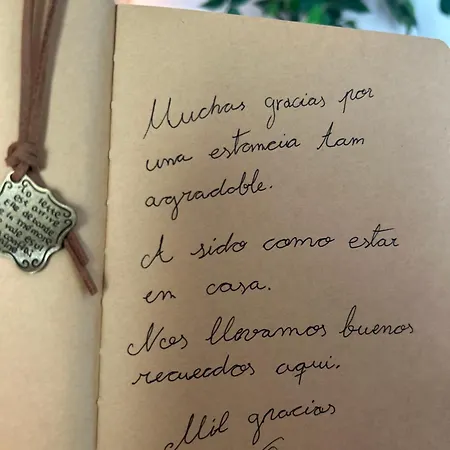 Muchas gracias por
una estancia tam
agradable.
A sido como estar
em casa.
Nos llevamos buenos
recuerdos aqui.
Mil gracias